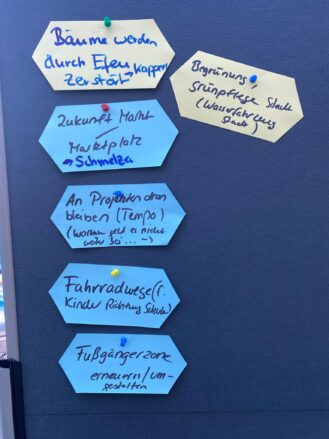 Bäume werden
durch Efeu
zerstört → kappen
Begrünung,
Grünpflege Stadt
(Wasserführung
Stadt)
Zukunft Markt
/
Marktplatz
→ Schmelza
An Projekten dran
bleiben (Tempo)
(warum geht es nicht
weiter bei ... →)
Fahrradwege (f.
Kinder Richtung Schule)
Fußgängerzone
erneuern/um-
gestalten